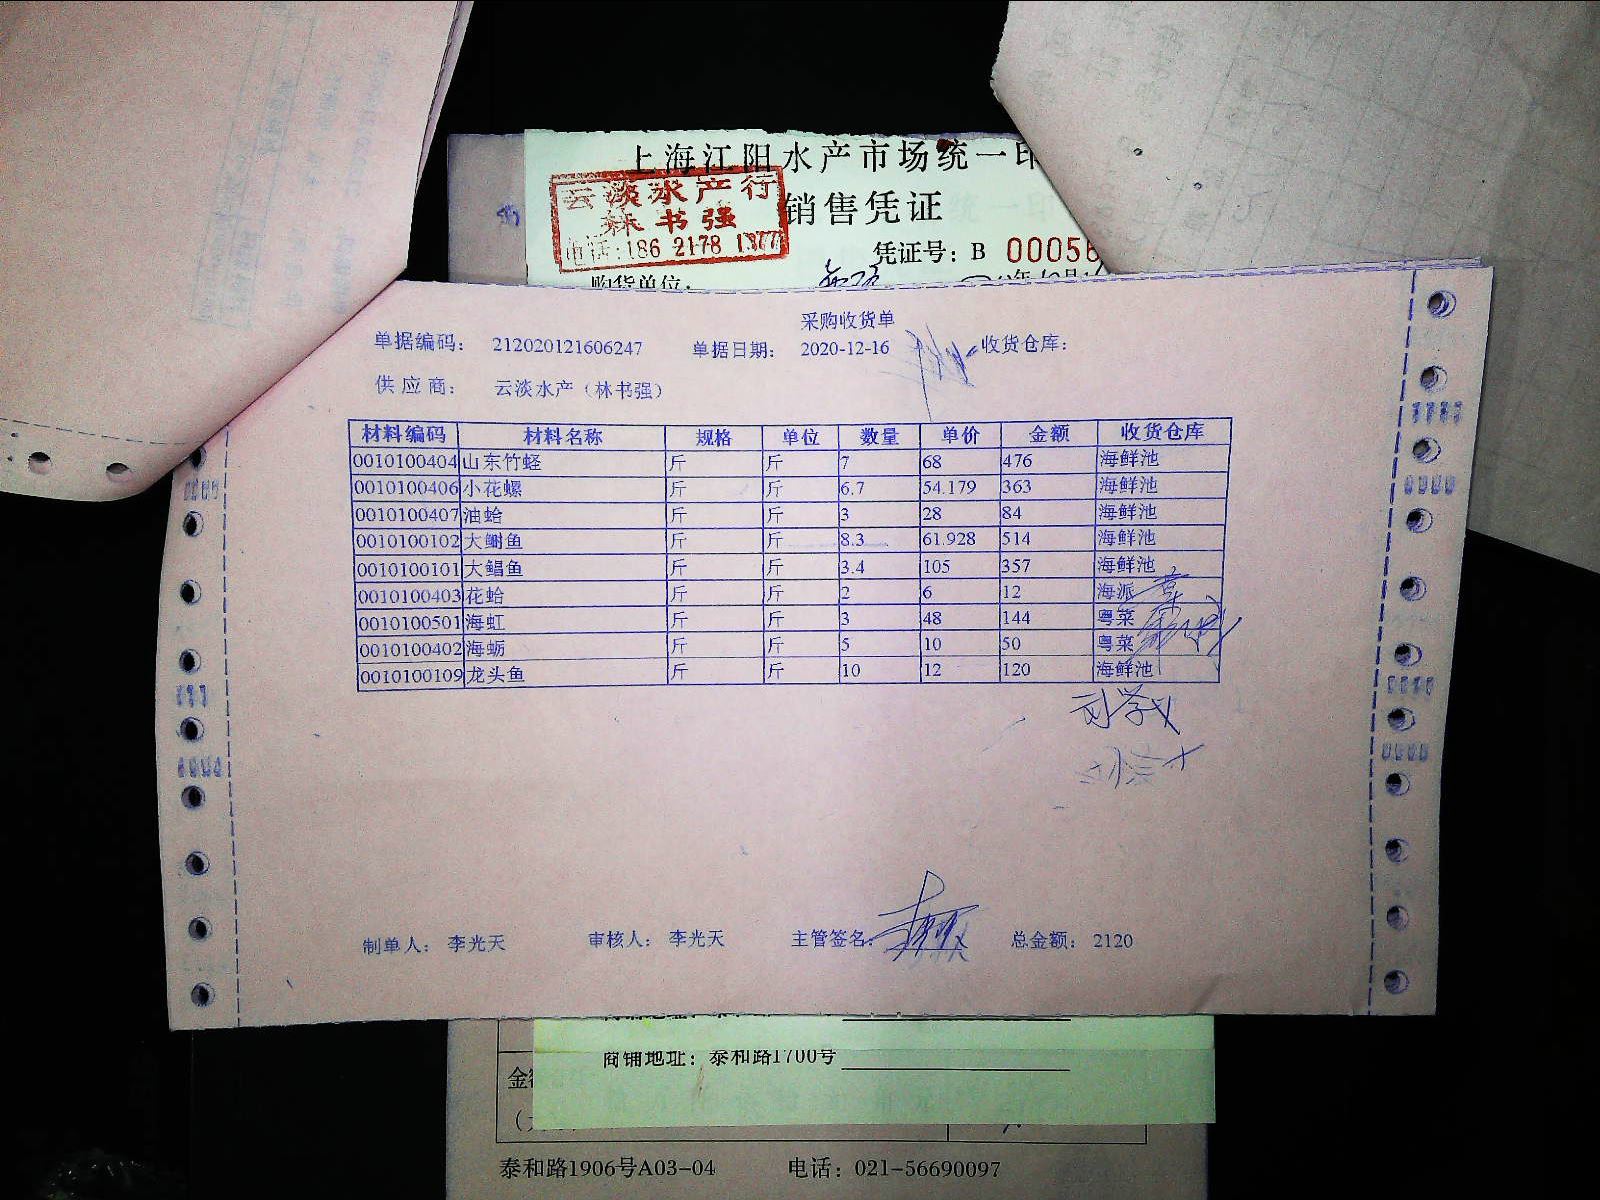 上海江阳水产市场统一印
云淡水产行
林书强
电话:186 2178 1377
销售凭证
凭证号: B 00056
购货单位:
采购收货单
单据编码: 212020121606247 单据日期: 2020-12-16 收货仓库:
供应商: 云淡水产（林书强）
材料编码 材料名称 规格 单位 数量 单价 金额 收货仓库
0010100404 山东竹蛏 斤 斤 7 68 476 海鲜池
0010100406 小花螺 斤 斤 6.7 54.179 363 海鲜池
0010100407 油蛤 斤 斤 3 28 84 海鲜池
0010100102 大鲥鱼 斤 斤 8.3 61.928 514 海鲜池
0010100101 大鲳鱼 斤 斤 3.4 105 357 海鲜池
0010100403 花蛤 斤 斤 2 6 12 海派
0010100501 海虹 斤 斤 3 48 144 粤菜
0010100402 海蛎 斤 斤 5 10 50 粤菜
0010100109 龙头鱼 斤 斤 10 12 120 海鲜池
制单人: 李光天 审核人: 李光天 主管签名: 总金额: 2120
商铺地址: 泰和路1700号
金
泰和路1906号A03-04 电话: 021-56690097